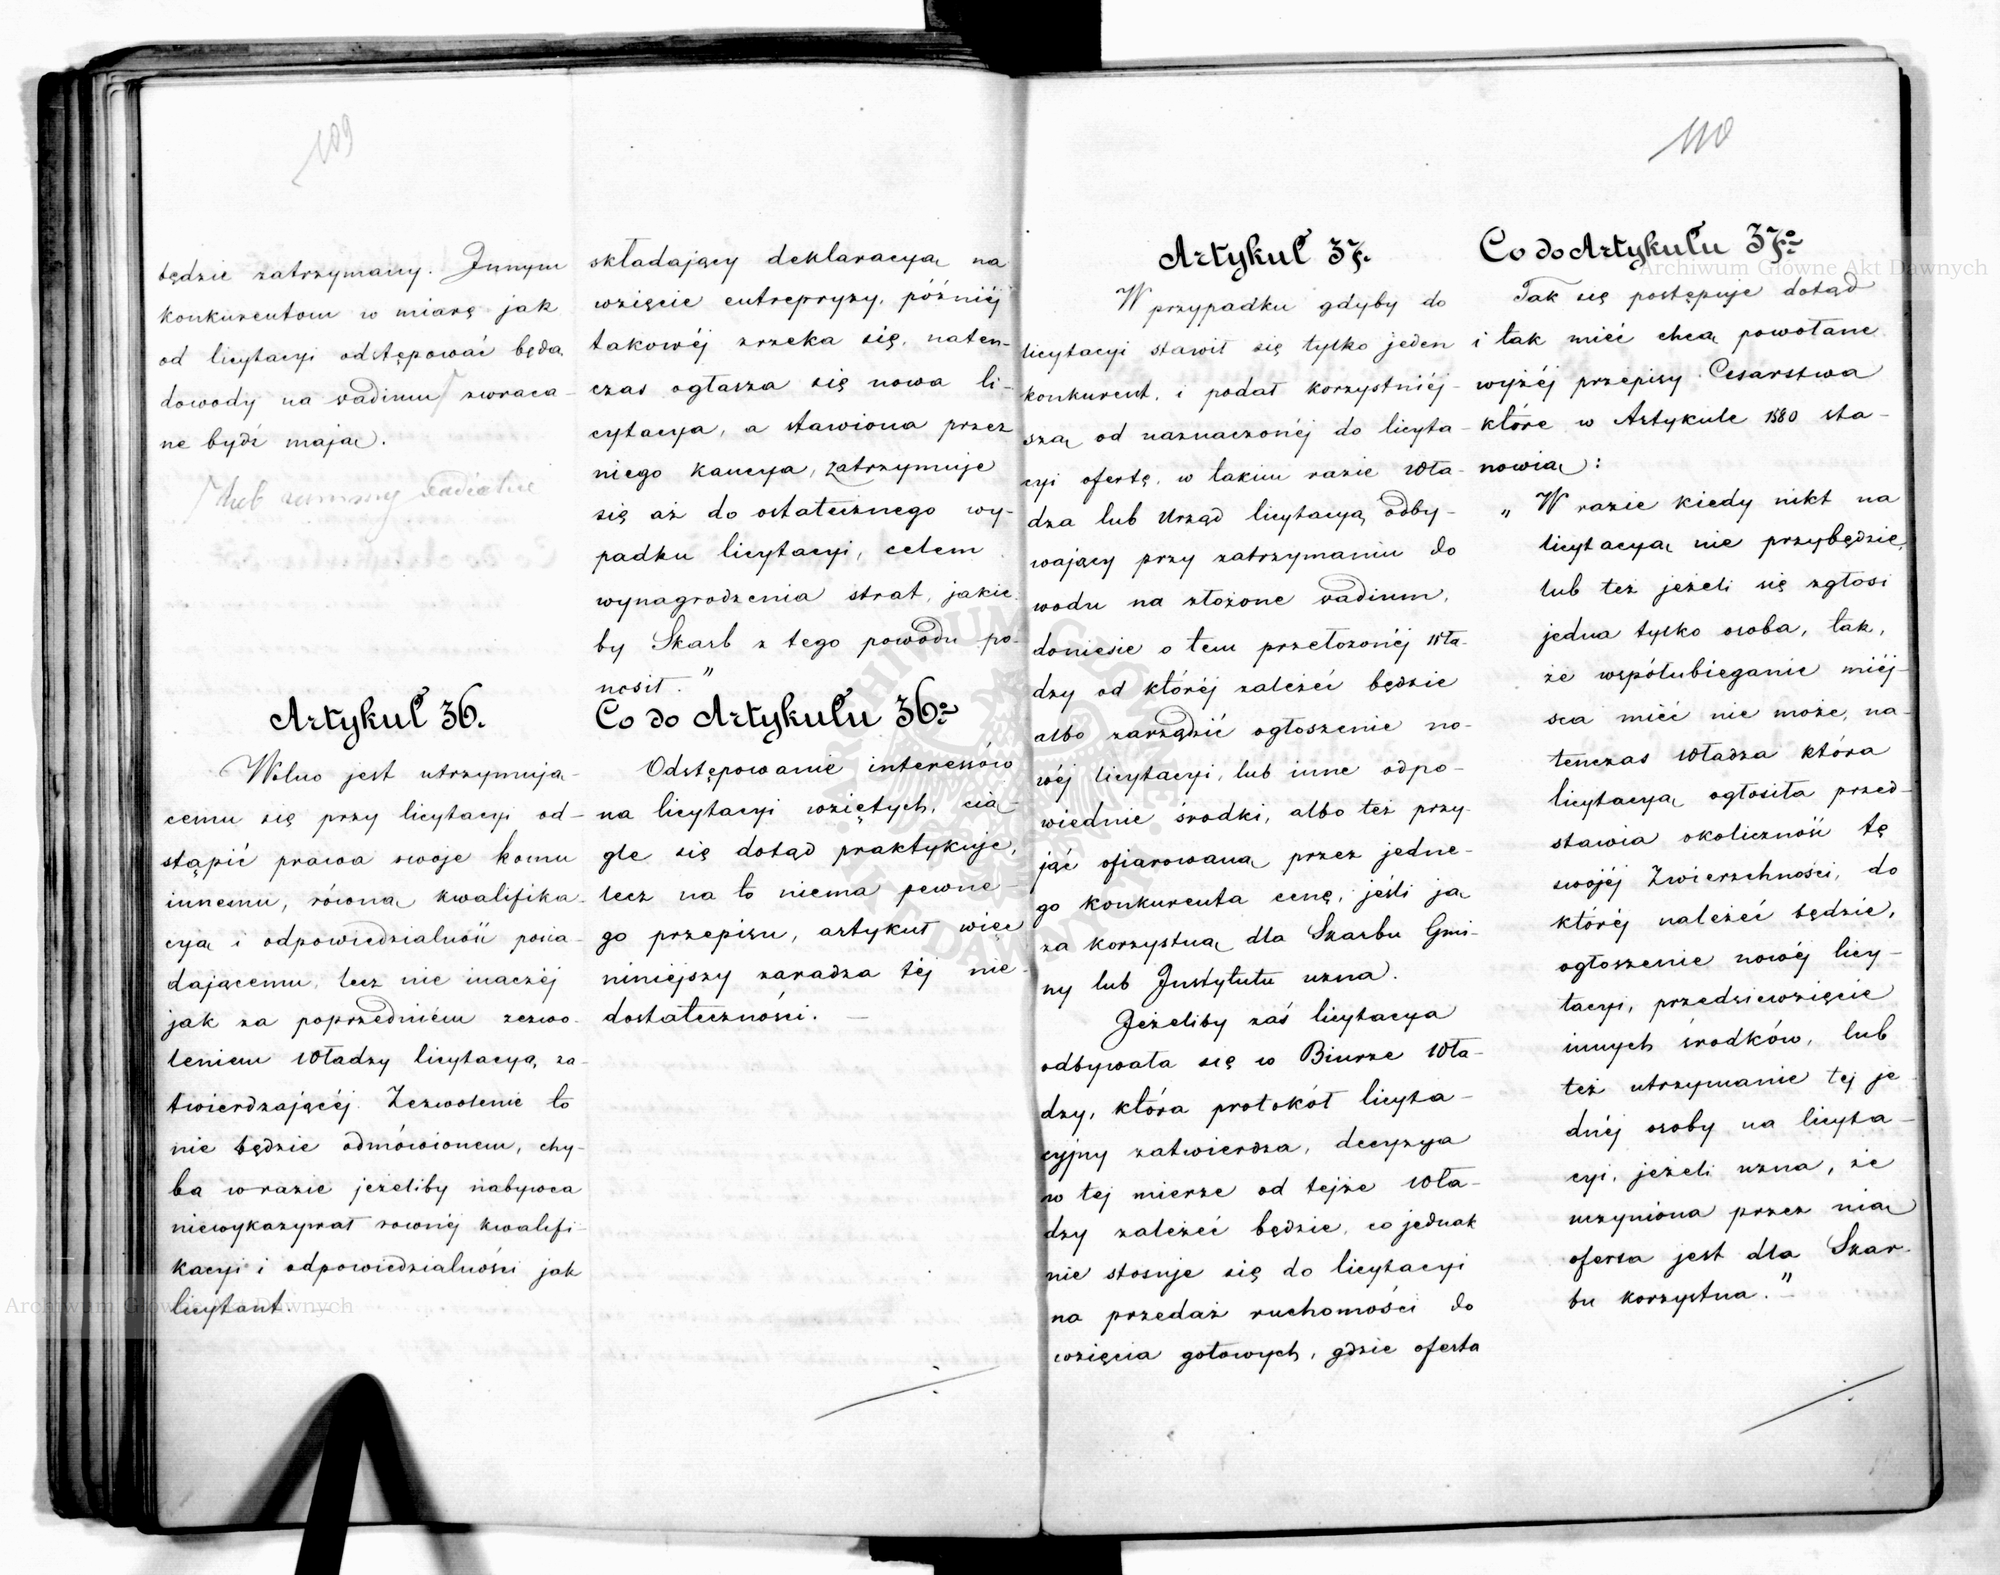 109
będzie zatrzymany. Innym
konkurentom w miarę jak
od licytacyi odstępować będą
dowody na vadium zwraca-
ne bydź mają.
lub summy vadialne
Artykuł 36.
Wolno jest utrzymują-
cemu się przy licytacyi od-
stąpić prawa swoje komu
innemu, równą kwalifika-
cyą i odpowiedzialność posia-
dającemu, lecz nie inaczéj
jak za poprzedniém zezwo-
leniem Władzy licytacyą za-
twierdzającéj. Zezwolenie to
nie będzie odmówionem, chy-
ba w razie jeżeliby nabywca
niewykazywał rownéj kwalifi-
kacyi i odpowiedzialności jak
licytant.
składający deklaracyą na
wzięcie entrepryzy, późniéj
takowéj zrzeka się, naten-
czas ogłasza się nowa li-
cytacya, a stawiona przez
niego kaucya, zatrzymuje
się aż do ostatecznego wy-
padku licytacyi, celem
wynagrodzenia strat, jakie
by Skarb z tego powodu po-
nosił."
Co do Artykułu 36º
Odstępowanie interessów
na licytacyi wziętych, cią-
gle się dotąd praktykuje,
lecz na to niema pewne-
go przepisu, artykuł więc
niniejszy zaradza téj nie-
dostateczności. —
110
Artykuł 37.
W przypadku gdyby do
licytacyi stawił się tylko jeden
konkurent, i podał korzystniéj-
szą od naznaczonéj do licyta-
cyi ofertę, w takim razie Wła-
dza lub Urząd licytacyą odby-
wający przy zatrzymaniu do
wodu na złożone vadium,
doniesie o tem przełożonéj Wła-
dzy od któréj zależéć będzie
albo zarządzić ogłoszenie no-
wéj licytacyi, lub inne odpo-
wiednie środki, albo też przy-
jąć ofiarowaną przez jedne-
go konkurenta cenę, jeśli ją
za korzystną dla Skarbu Gmi-
ny lub Instytutu uzna.
Jeżeliby zaś licytacya
odbywała się w Biurze Wła-
dzy, która protokół licyta-
cyjny zatwierdza, decyzya
w tej mierze od tejże Wła-
dzy zależéć będzie, co jednak
nie stosuje się do licytacyi
na przedaż ruchomości do
wzięcia gotowych, gdzie oferta
Co do Artykułu 37º
Tak się postępuje dotąd
i tak miéć chcą powołane
wyżéj przepisy Cesarstwa
które w Artykule 1580 sta-
nowią:
„ W razie kiedy nikt na
licytacyą nie przybędzie,
lub też jeżeli się zgłosi
jedna tylko osoba, tak,
że współubieganie miéj-
sca miéć nie może, na-
tenczas Władza która
licytacyą ogłosiła przed-
stawia okoliczność tę
swojéj Zwierzchności, do
któréj należéć będzie,
ogłoszenie nowéj licy-
tacyi, przedsiewzięcie
innych środków, lub
też utrzymanie tej je
dnéj osoby na licyta-
cyi, jeżeli uzna, że
uczyniona przez nią
oferta jest dla Skar-
bu korzystna." –
Archiwum Główne Akt Dawnych
Archiwum Główne Akt Dawnych
ARCHIWUM GŁÓWNE AKT DAWNYCH